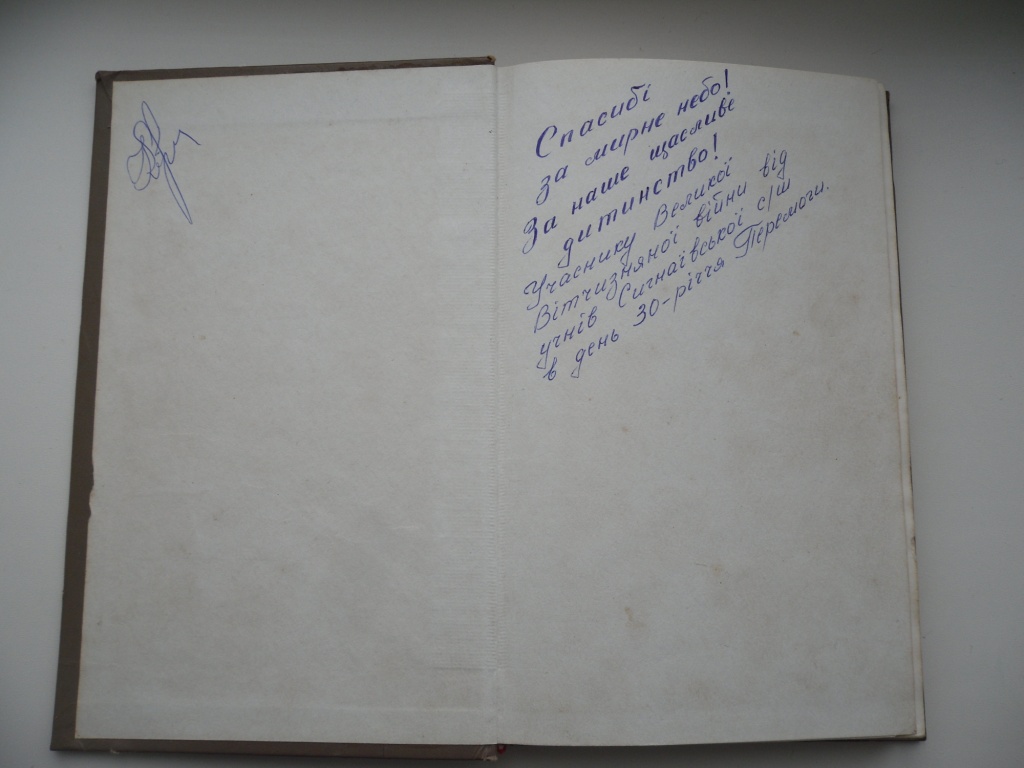 Спасибі
за мирне небо!
За наше щасливе
дитинство!
Учаснику Великої
Вітчизняної війни від
учнів Сигнаївської с/ш
в день 30-річчя Перемоги.